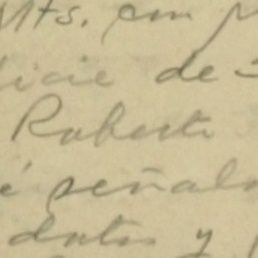 Mts. con
icie de
Roberto
é señala
datos y